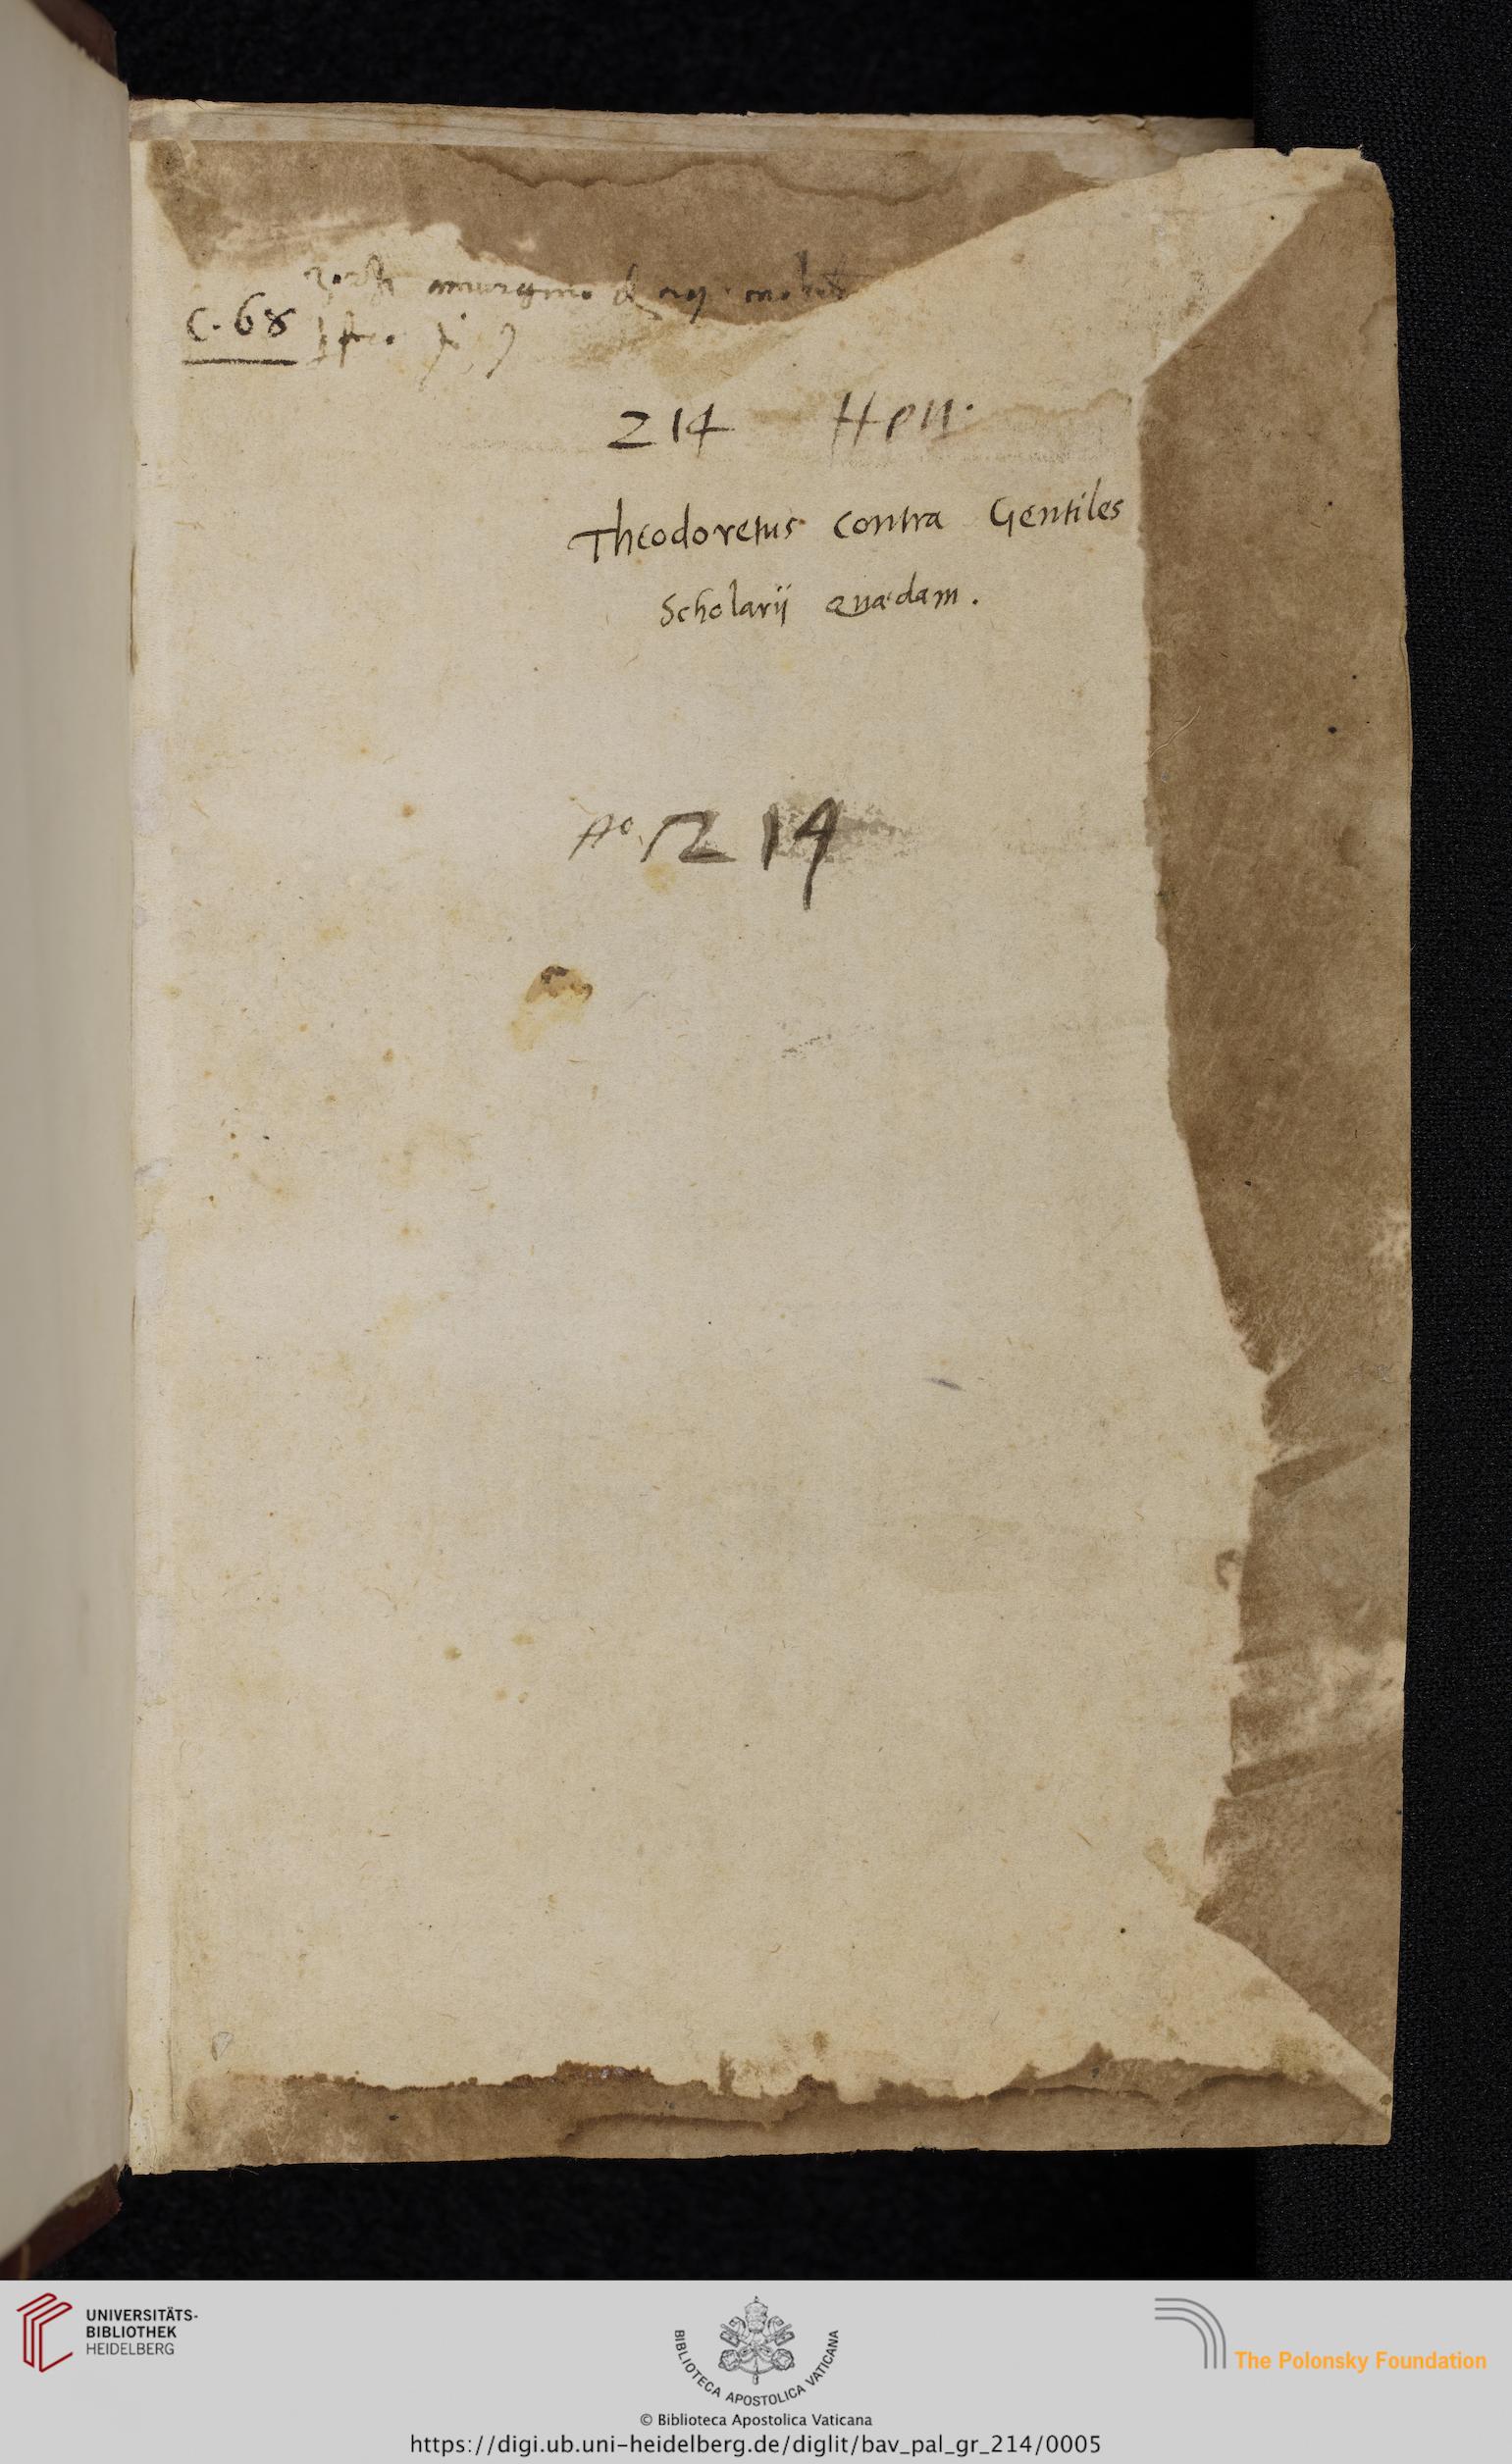 C. 68
214 Hen.
Theodoretus contra Gentiles
Scholarij Quædam.
214
UNIVERSITÄTS-
BIBLIOTHEK
HEIDELBERG
BIBLIOTECA APOSTOLICA VATICANA
The Polonsky Foundation
© Biblioteca Apostolica Vaticana
https://digi.ub.uni-heidelberg.de/diglit/bav_pal_gr_214/0005